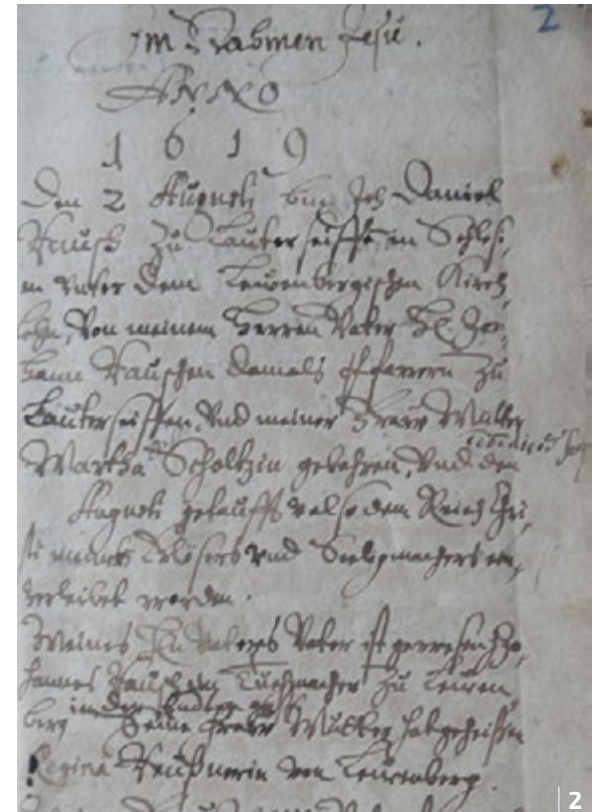 2
Im Nahmen Jesu.
ANNO
1 6 1 9
Den 2 Augusti bin Ich Daniel
zu Lauterseiffen in Schlesi,
en unter dem Leuenbergischen Kirch,
lehn, Von meinem Herren Vater H. Jo,
hann damals Pfarrern zu
Lauterseiffen, Und meiner Fraw Mutter
Martha Scholtzin gebohren, Und den
Augusti getaufft, also dem Reich Chri,
sti meines Erlösers Und Seeligmachers ein,
verleibet worden.
Meines Vaters Vater ist gewesen Jo,
hannes ein Tuchmacher zu Leuen,
berg in der Seine Fraw Mutter hat geheißen
Regina von Leurenberg.
2